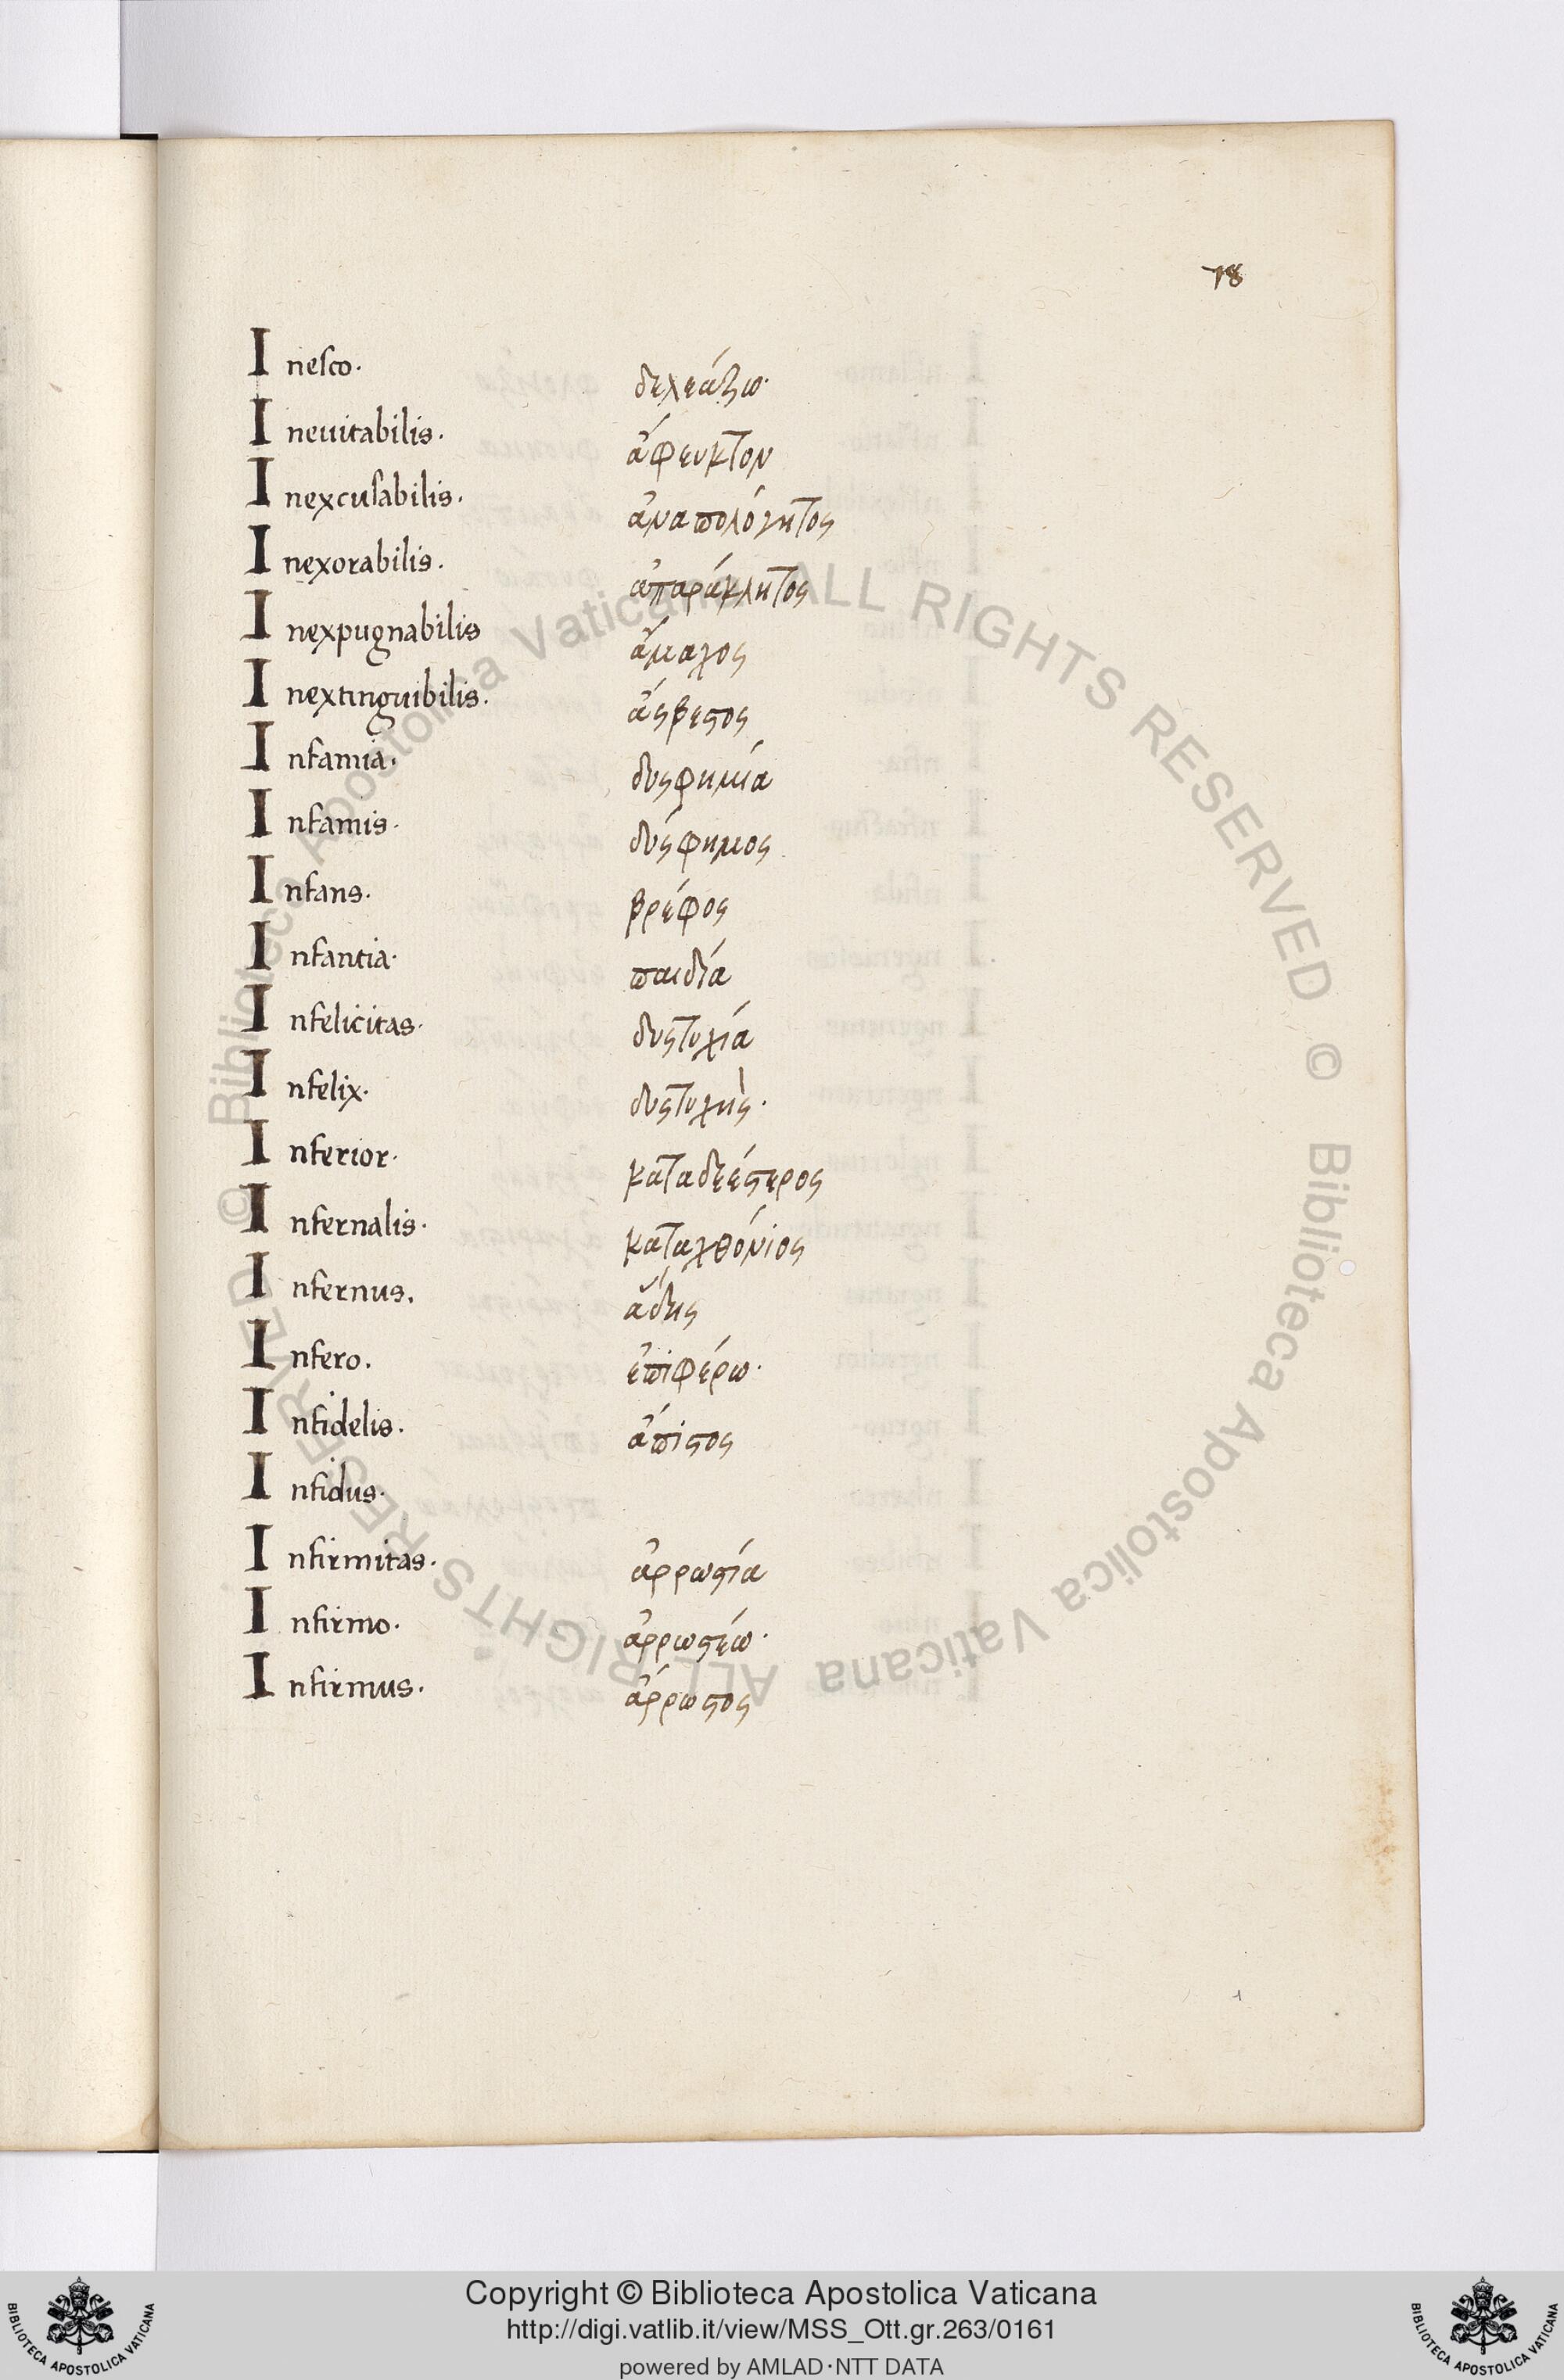 78
Inesco. δελεάζω·
Ineuitabilis. ἄφευκτον
Inexcusabilis. ἀναπολόγητος
Inexorabilis. ἀπαράκλητος
Inexpugnabilis ἄμαχος
Inextinguibilis. ἄσβεστος
Infamia. δυσφημία
Infamis. δύσφημος
Infans. βρέφος
Infantia. παιδία
Infelicitas. δυστυχία
Infelix. δυστυχὴς.
Inferior. καταδεέστερος
Infernalis. καταχθόνιος
Infernus. ἅδης
Infero. ἐπιφέρω·
Infidelis. ἄπιστος
Infidus.
Infirmitas. ἀρρωστία
Infirmo. ἀρρωστέω·
Infirmus. ἄρρωστος
© Biblioteca Apostolica Vaticana ALL RIGHTS RESERVED
© Biblioteca Apostolica Vaticana ALL RIGHTS RESERVED
Copyright © Biblioteca Apostolica Vaticana
http://digi.vatlib.it/view/MSS_Ott.gr.263/0161
powered by AMLAD·NTT DATA
BIBLIOTECA APOSTOLICA VATICANA
BIBLIOTECA APOSTOLICA VATICANA